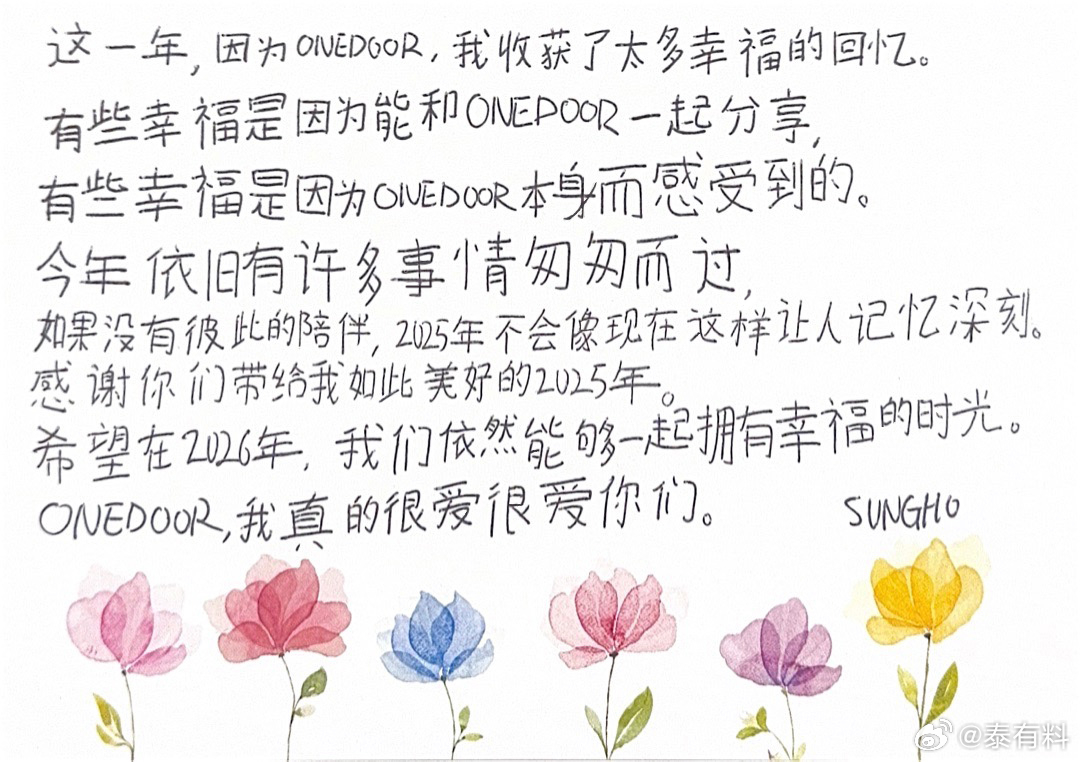 这一年,因为ONEDOOR,我收获了太多幸福的回忆。
有些幸福是因为能和ONEDOOR一起分享,
有些幸福是因为ONEDOOR本身而感受到的。
今年依旧有许多事情匆匆而过,
如果没有彼此的陪伴,2025年不会像现在这样让人记忆深刻。
感谢你们带给我如此美好的2025年。
希望在2026年,我们依然能够一起拥有幸福的时光。
ONEDOOR,我真的很爱很爱你们。 SUNGHO
@泰有料